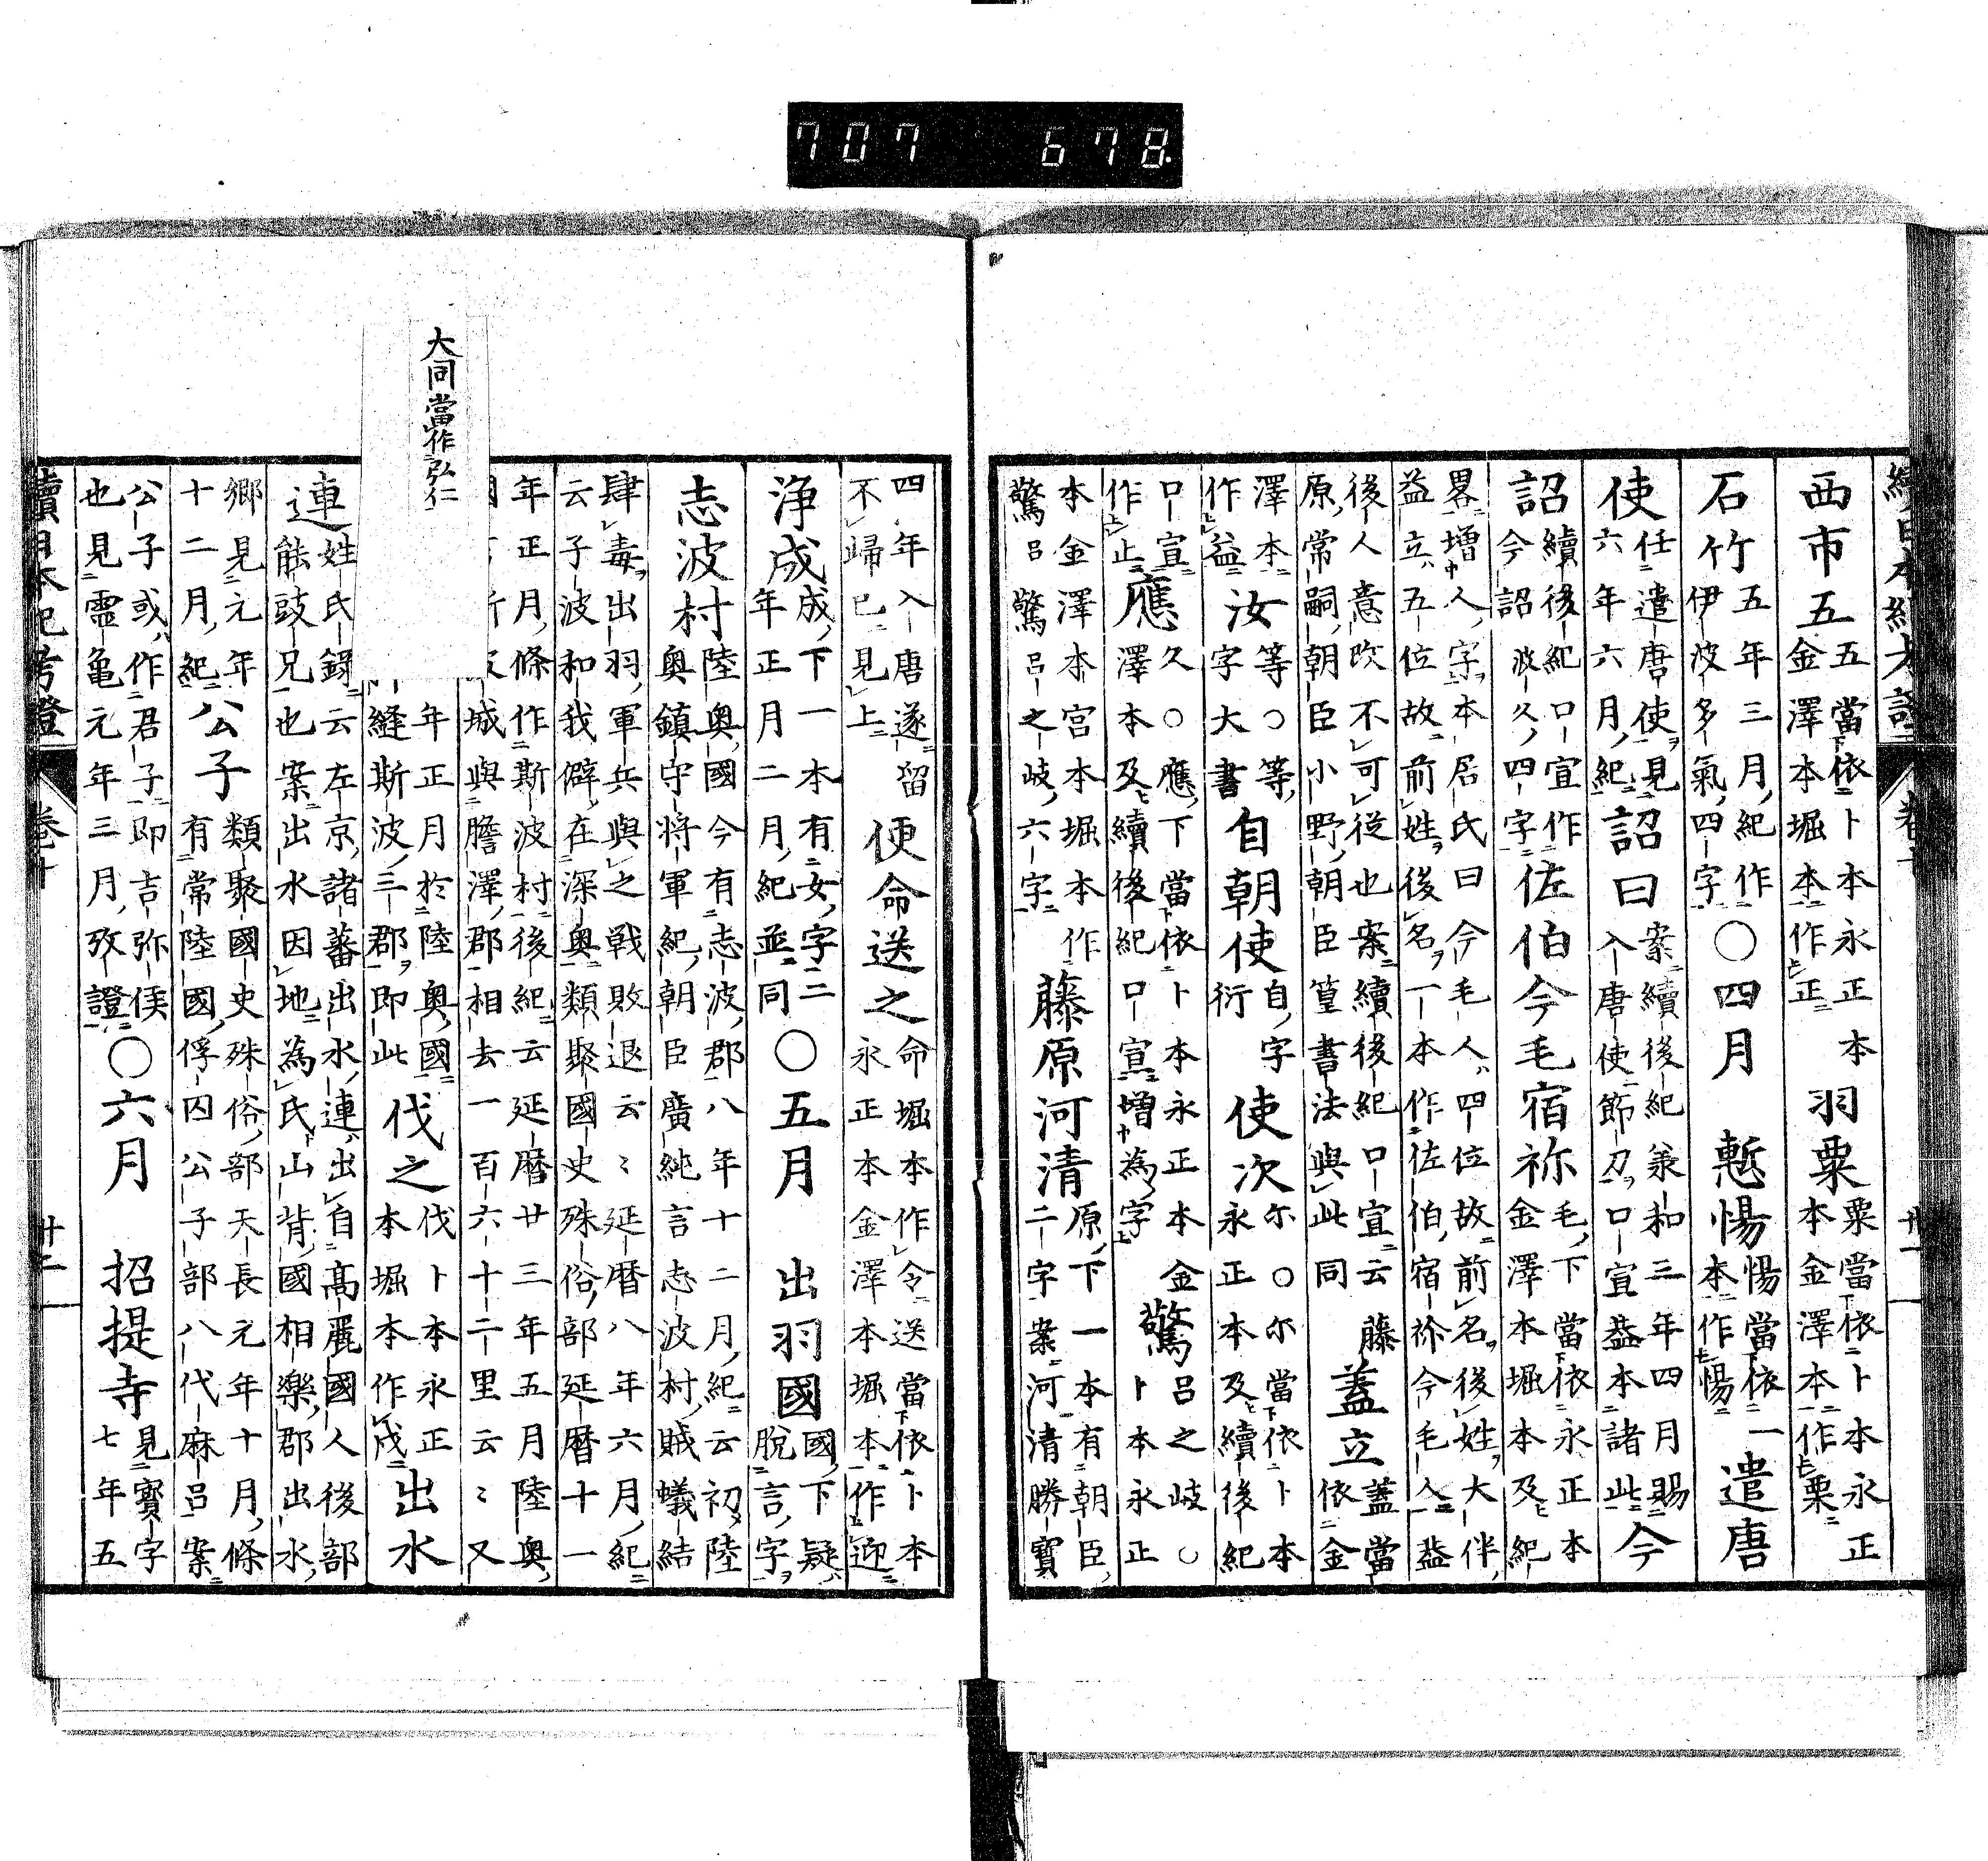 續日本紀考證 卷十 廿一
西市五 五當依卜本永正本
金澤本堀本作正
羽粟 粟當依卜本永正
本金澤本作栗
石竹 五年三月紀作
伊波多氣四字
○四月 慙惕 惕當依一
本作惕
遣唐
使 任遣唐使見
六年六月紀
詔曰 案續後紀承和三年四月賜
入唐使節刀口宣葢本諸此
今
詔 續後紀口宣作
今詔波久四字
佐伯今毛宿祢 毛下當依永正本
金澤本堀本及紀
畧増人字本居氏曰今毛人四位故前名後姓大伴
益立五位故前姓後名一本作佐伯宿祢今毛人葢
後人意改不可從也案續後紀口宣云藤
原常嗣朝臣小野朝臣篁書法與此同
葢立 葢當
依金
澤本
作益
汝等 ○等
字大書
自朝使 自字
衍
使次 尓○尓當依卜本
永正本及續後紀
口宣
作止
應 久○應下當依卜本永正本金
澤本及續後紀口宣増為字
驚 呂之岐○
卜本永正
本金澤本宮本堀本作
驚呂驚呂之岐六字
藤原河清 原下一本有朝臣
二字案河清勝寶
四年入唐遂留
不歸已見上
便命送之 命堀本作令送當依卜本
永正本金澤本堀本作迎
浄成 成下一本有女字二
年正月二月紀並同
○五月 出羽國 國下疑
脫言字
志波村 陸奥國今有志波郡八年十二月紀云初陸
奥鎮守将軍紀朝臣廣純言志波村賊蟻結
肆毒出羽軍兵與之戰敗退云〻延暦八年六月紀
云子波和我僻在深奥類聚國史殊俗部延暦十一
年正月條作斯波村後紀云延暦廿三年五月陸奥
城與膽澤郡相去一百六十二里云〻又
年正月於陸奥國
縫斯波三郡即此
伐之 伐卜本永正
本堀本作戍
出水
連 姓氏録云左京諸蕃出水連出自髙麗國人後部
能豉兄也案出水因地為氏山背國相樂郡出水
鄉見元年
十二月紀
公子 類聚國史殊俗部天長元年十月條
有常陸國俘囚公子部八代麻呂案
公子或作君子即吉弥侯
也見霊亀元年三月攷證
○六月 招提寺 見寶字
七年五
大同當作弘仁
續日本紀考證 卷十 廿二